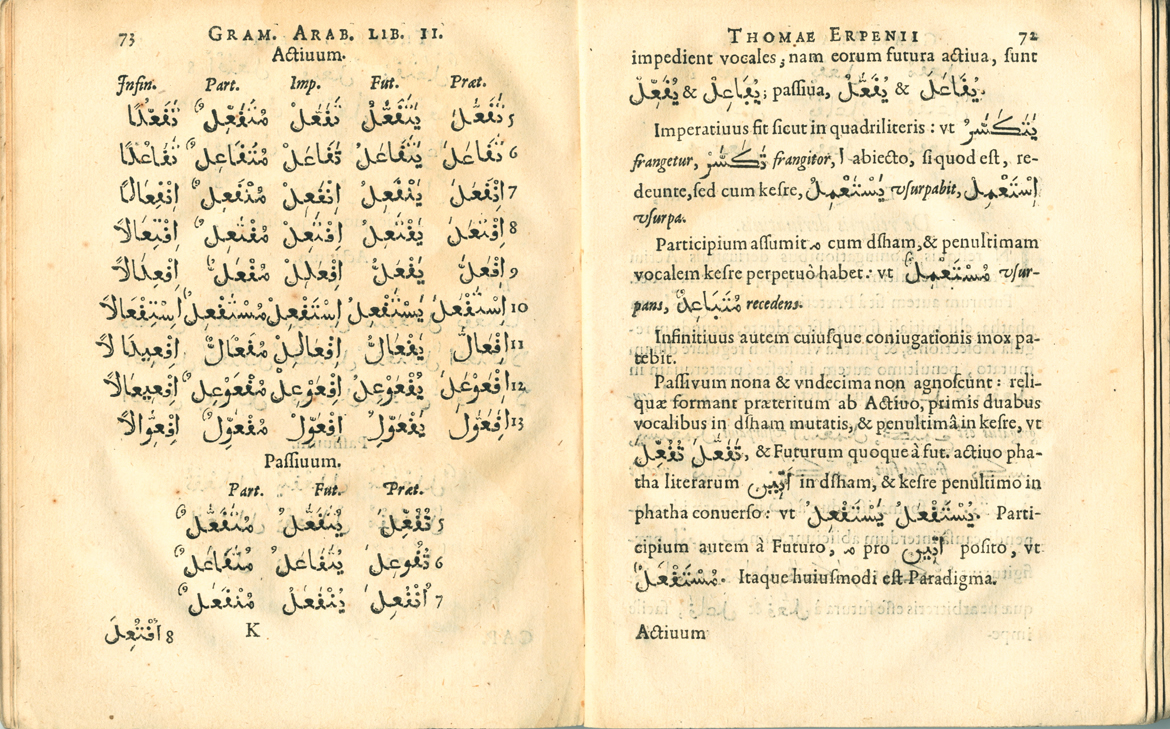 THOMAE ERPENII 72
impedient vocales, nam eorum futura actiua, ſunt
يُفَعِّلُ & يُفَاعِلُ; paſſiua, يُفَعَّلُ & يُفَاعَلُ.
Imperatiuus fit ſicut in quadriliteris: vt يَتَكَسَّرُ
frangetur, تَكَسَّرْ frangitor, ا abiecto, ſi quod eſt, re-
deunte, ſed cum keſre, يَسْتَعْمِلُ vſurpabit, إِسْتَعْمِلْ
vſurpa.
Participium aſſumit م cum dſham, & penultimam
vocalem keſre perpetuò habet: vt مُسْتَعْمِلٌ vſur-
pans, مُتَبَاعِدٌ recedens.
Infinitiuus autem cuiuſque coniugationis mox pa-
tebit.
Paſſivum nona & vndecima non agnoſcunt: reli-
quæ formant præteritum ab Actiuo, primis duabus
vocalibus in dſham mutatis, & penultimâ in keſre, vt
تَفَعَّلَ تُفُعِّلَ, & Futurum quoque à fut. actiuo pha-
tha literarum أتين in dſham, & keſre penultimo in
phatha conuerſo: vt يَسْتَفْعِلُ يُسْتَفْعَلُ. Parti-
cipium autem à Futuro, م pro أتين poſito, vt
مُسْتَفْعَلٌ. Itaque huiuſmodi eſt Paradigma.
Actiuum
73 GRAM. ARAB. LIB. II.
Actiuum.
Infin. Part. Imp. Fut. Præt.
5 تَفَعَّلَ يَتَفَعَّلُ تَفَعَّلْ مُتَفَعِّلٌ تَفَعُّلًا
6 تَفَاعَلَ يَتَفَاعَلُ تَفَاعَلْ مُتَفَاعِلٌ تَفَاعُلًا
7 إِنْفَعَلَ يَنْفَعِلُ إِنْفَعِلْ مُنْفَعِلٌ إِنْفِعَالًا
8 إِفْتَعَلَ يَفْتَعِلُ إِفْتَعِلْ مُفْتَعِلٌ إِفْتِعَالًا
9 إِفْعَلَّ يَفْعَلُّ إِفْعَلِلْ مُفْعَلٌّ إِفْعِلَالًا
10 إِسْتَفْعَلَ يَسْتَفْعِلُ إِسْتَفْعِلْ مُسْتَفْعِلٌ إِسْتِفْعَالًا
11 إِفْعَالَّ يَفْعَالُّ إِفْعَالِلْ مُفْعَالٌّ إِفْعِيلَالًا
12 إِفْعَوْعَلَ يَفْعَوْعِلُ إِفْعَوْعِلْ مُفْعَوْعِلٌ إِفْعِيعَالًا
13 إِفْعَوَّلَ يَفْعَوِّلُ إِفْعَوِّلْ مُفْعَوِّلٌ إِفْعِوَّالًا
Paſſiuum.
Part. Fut. Præt.
5 تُفُعِّلَ يُتَفَعَّلُ مُتَفَعَّلٌ
6 تُفُوعِلَ يُتَفَاعَلُ مُتَفَاعَلٌ
7 أُنْفُعِلَ يُنْفَعَلُ مُنْفَعَلٌ
K
8 أُفْتُعِلَ